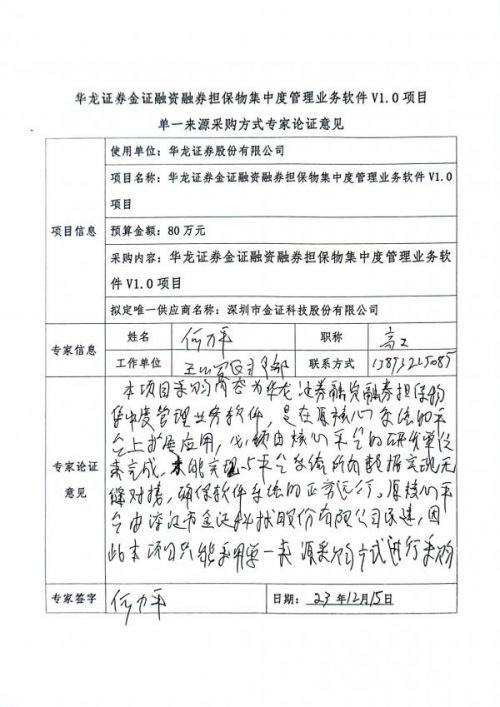 华龙证券金证融资融券担保物集中度管理业务软件 V1.0 项目
单一来源采购方式专家论证意见
项目信息
使用单位：华龙证券股份有限公司
项目名称：华龙证券金证融资融券担保物集中度管理业务软件 V1.0
项目
预算金额：80 万元
采购内容：华龙证券金证融资融券担保物集中度管理业务软
件 V1.0 项目
拟定唯一供应商名称：深圳市金证科技股份有限公司
专家信息
姓名 何力平 职称 高工
工作单位 联系方式 13893225085
专家论证
意见
本项目采购内容为华龙证券融资融券担保物
集中度管理业务软件，是在原核心系统的平
台上扩展应用，必须由核心平台的研发单位
来完成，才能实现与平台系统所有数据实现无
缝对接，确保软件系统的正常运行。原核心平
台由深圳市金证科技股份有限公司承建，因
此本项目只能采用单一来源采购方式进行采购
专家签字 何力平 日期：23年12月15日